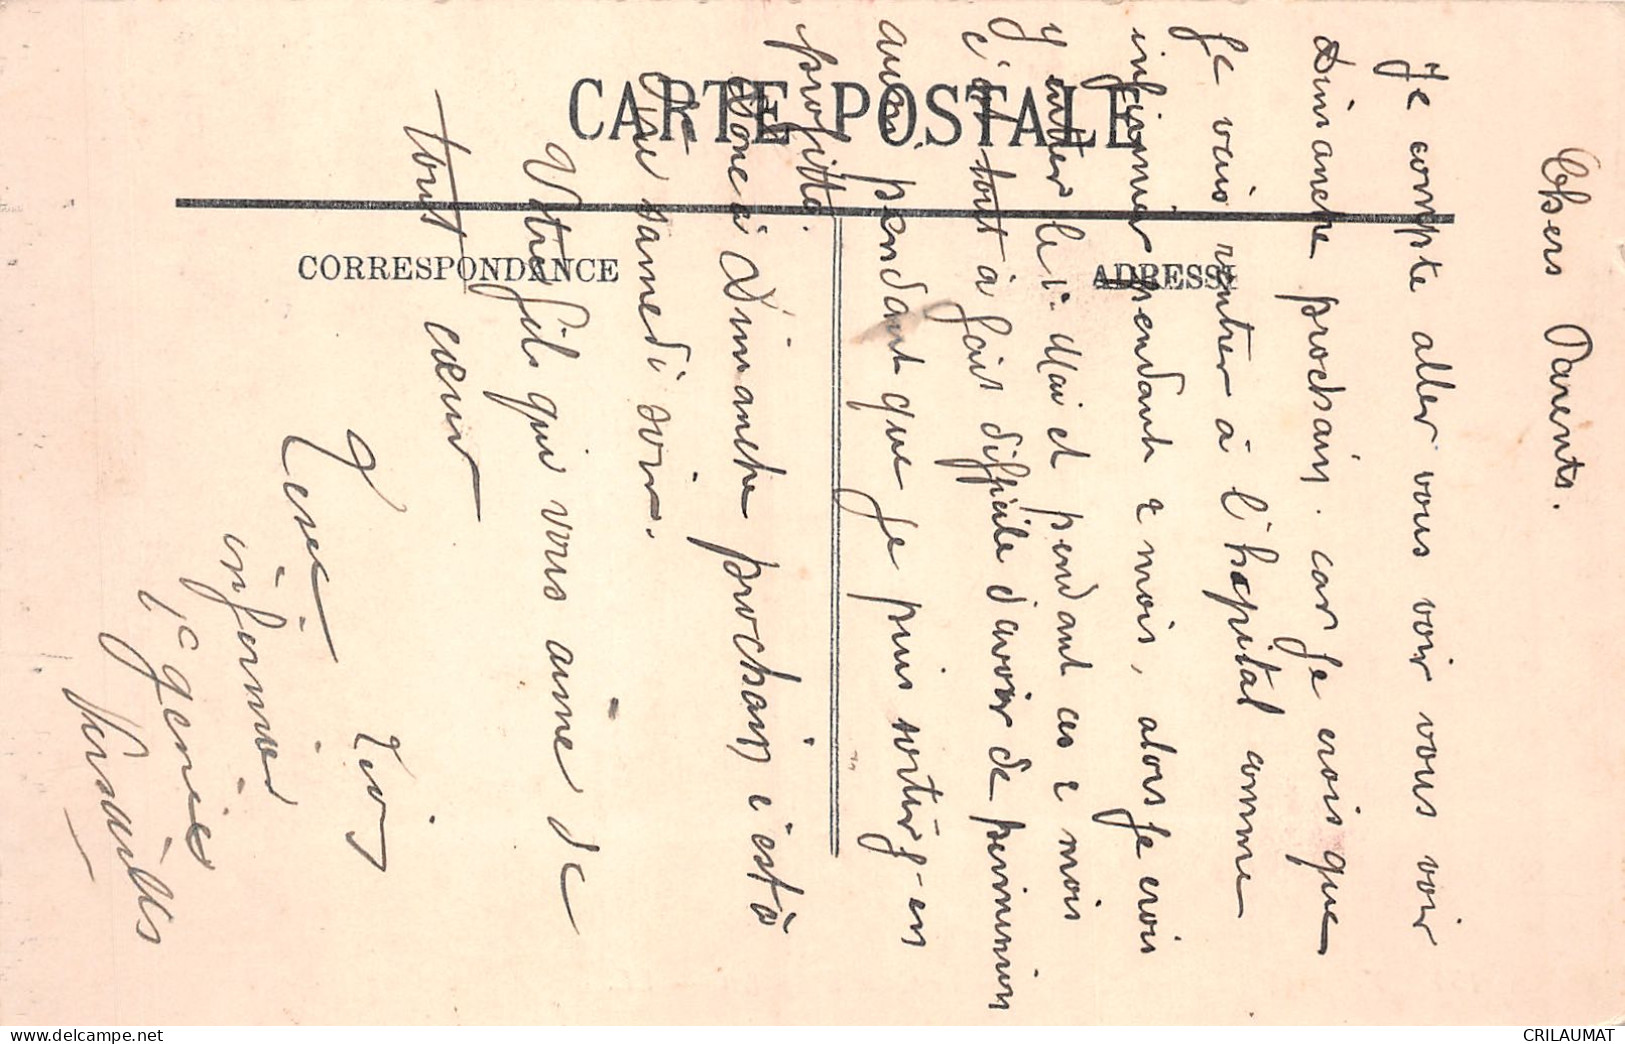 CARTE POSTALE
CORRESPONDANCE
ADRESSE
Chers Parents.
Je compte aller vous voir vous voir
Dimanche prochain. car Je crois que
Je vais rentrer à l'hopital comme
infirmier pendant 2 mois, alors Je crois
y entrer le 1er Mai et pendant ces 2 mois
c'est tout à fait difficile d'avoir de permission
aussi pendant que Je puis sortir J-en
profite
Donc à Dimanche prochain c'est à
dire samedi soir.
Votre fils qui vous aime de
tout cœur
infirmier
1er genie
Versailles
CRILAUMAT